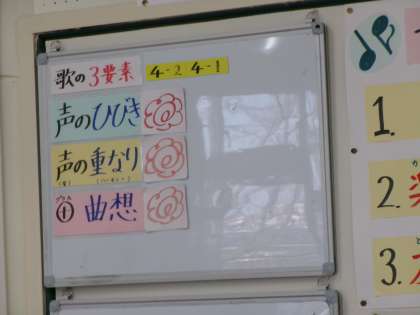 歌の3要素
4-2 4-1
声のひびき
声の重なり
曲想
1.
2.
3.